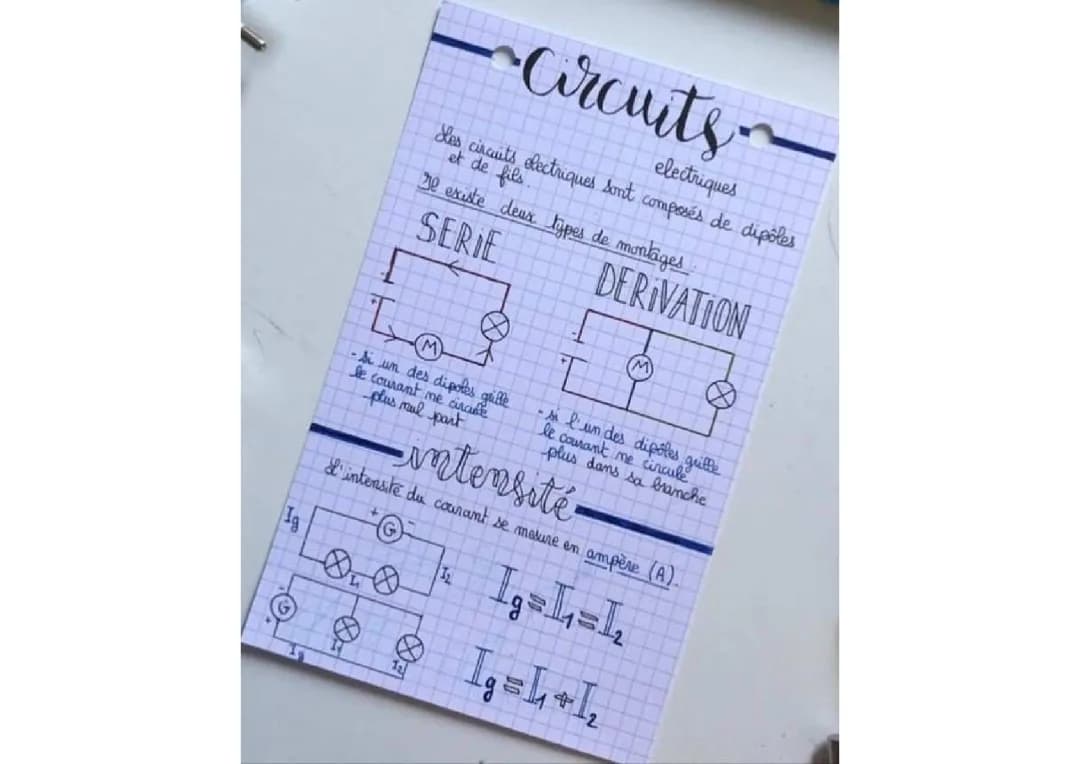 Circuits
electriques
Les circuits electriques sont composés de dipôles
et de fils.
Il existe deux types de montages.
SERIE
DERiVATiON
-
+
M
-
+
M
- si un des dipoles grille
le courant ne circule
plus nul part
- si l'un des dipôles grille
le courant ne circule
plus dans sa branche
intensité
L'intensité du courant se mesure en ampère (A).
Ig
+ G -
I1
I2
Ig=I1=I2
-
G
+
Ig
I1
I2
Ig=I1+I2